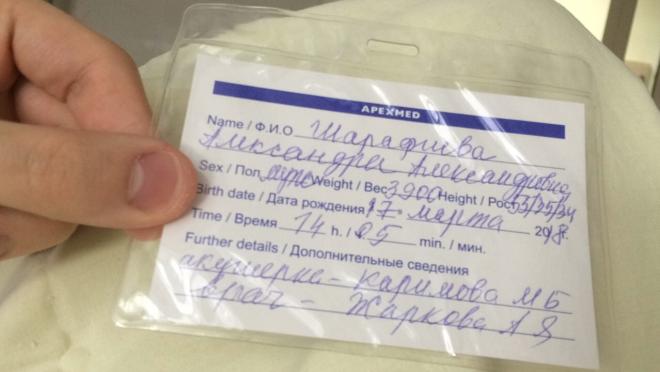 APEXMED
Name / Ф.И.О Шарафиева
Александра Александровна
Sex / Пол муж Weight / Вес 3900 Height / Рост 53/35/34
Birth date / Дата рождения 17 марта 2018г.
Time / Время 14 h. / 05 min. / мин.
Further details / Дополнительные сведения
акушерка - Каримова МБ
врач - Жаркова А Я